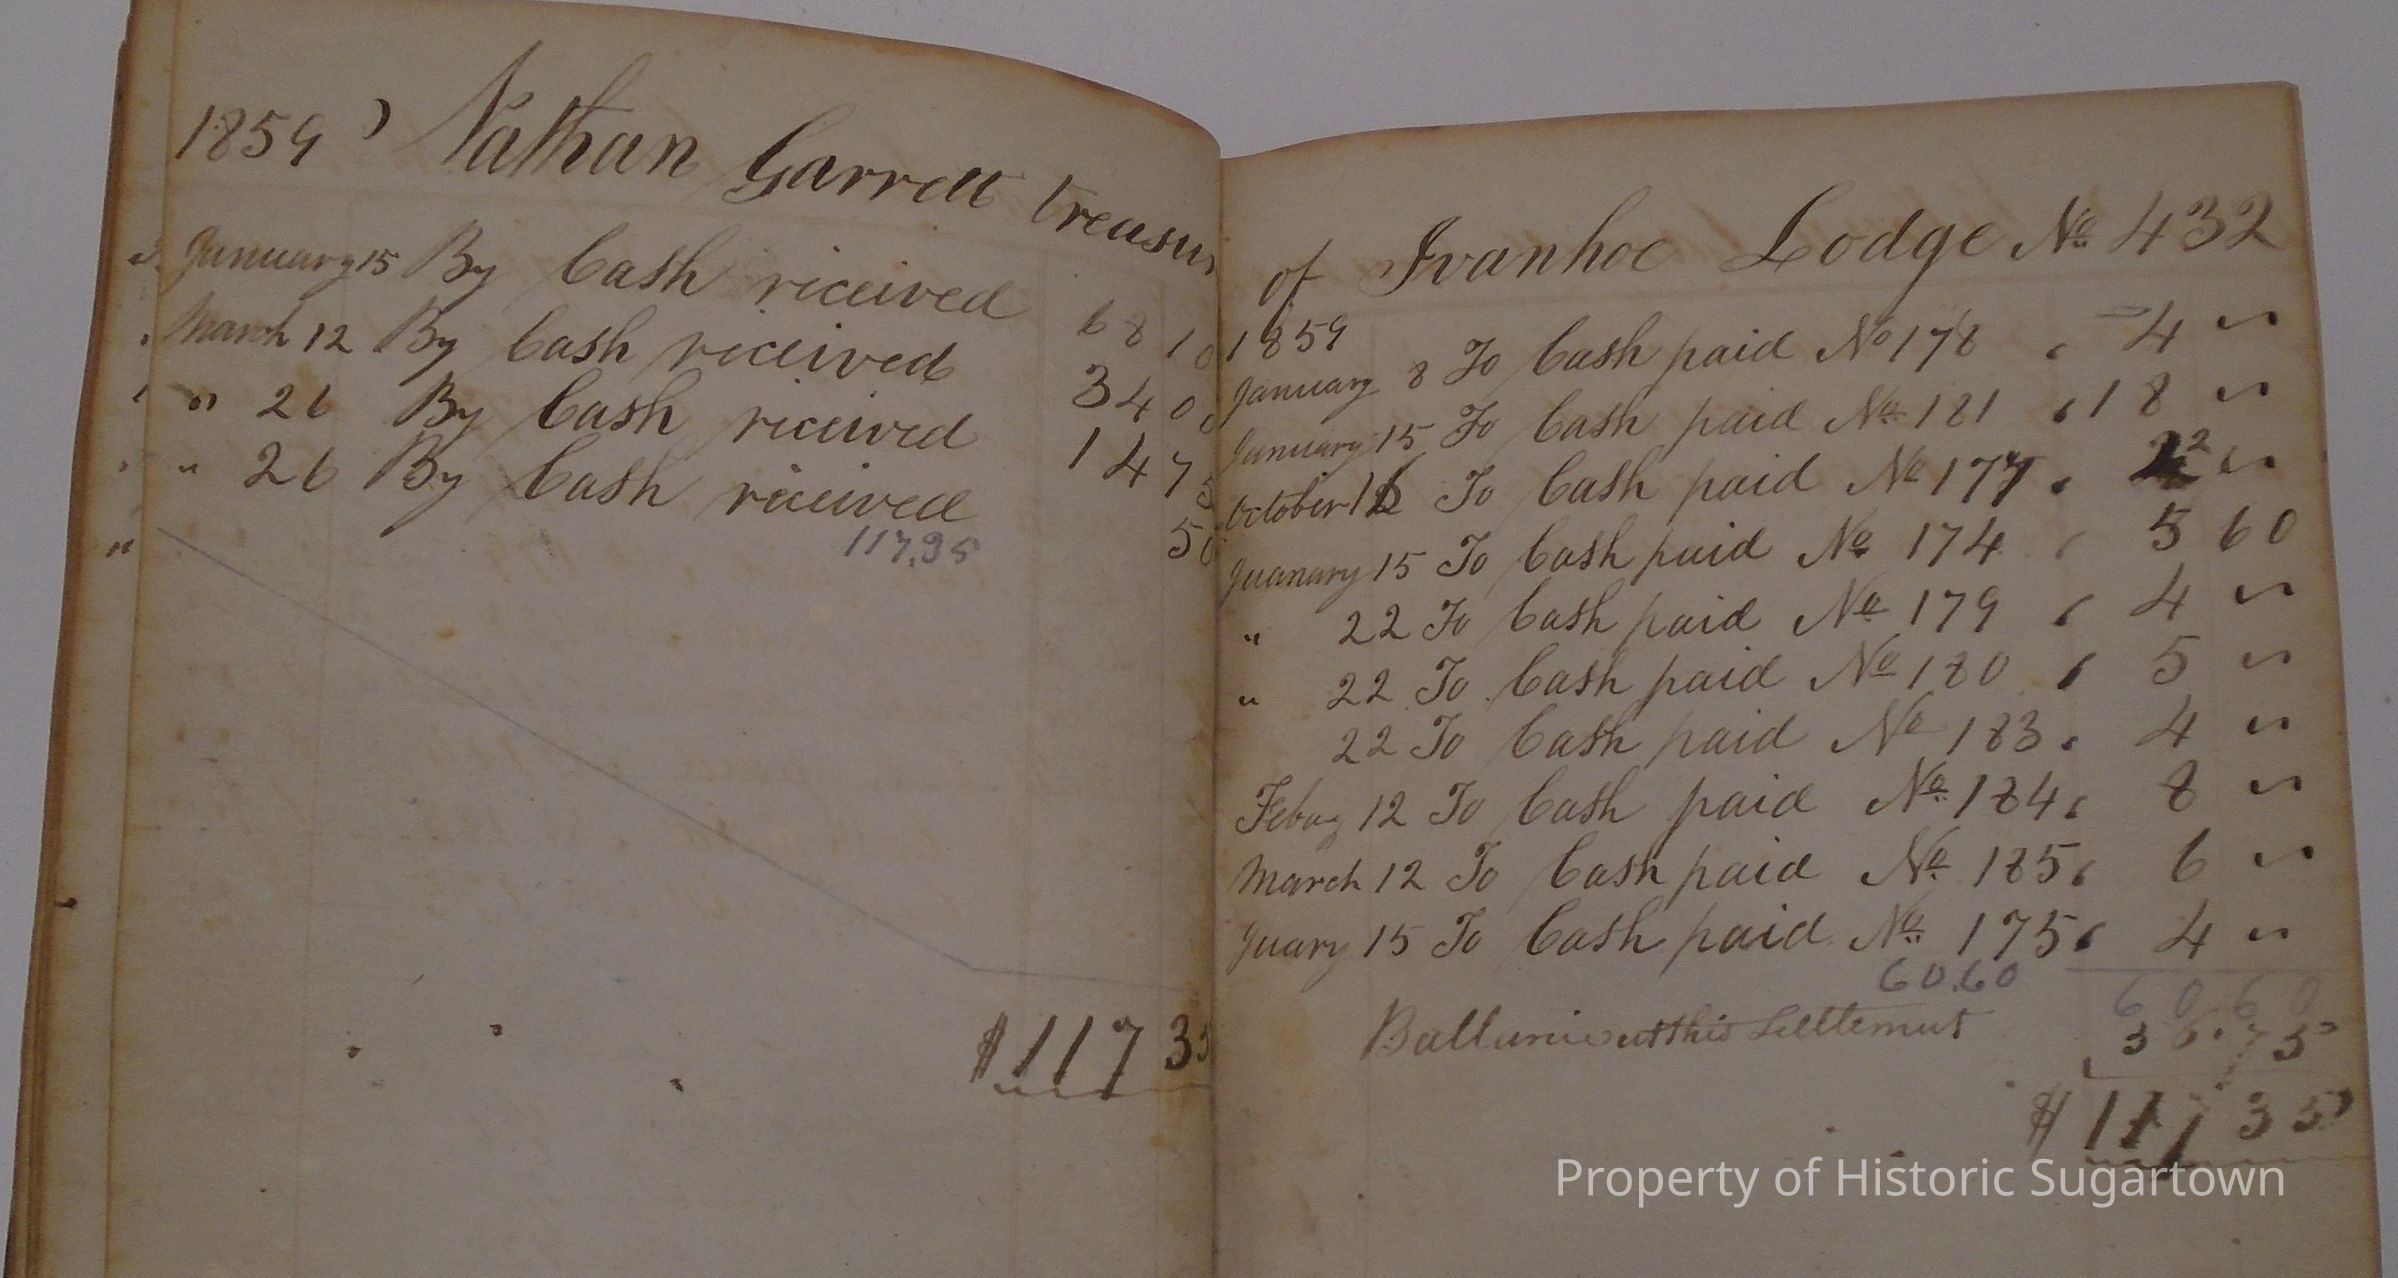 1859 Nathan Garrett treasur
January 15 By Cash riceived 68 10
March 12 By Cash riceived 34 00
" 26 By Cash riceived 14 75
" 26 By Cash riceived 50
117.35
$117 35
of Ivanhoe Lodge No 432
1859
January 8 To Cash paid No 178 4 "
January 15 To Cash paid No 181 18 "
October 16 To Cash paid No 177 2 "
Juanary 15 To Cash paid No 174 5 60
" 22 To Cash paid No 179 4 "
" 22 To Cash paid No 180 5 "
22 To Cash paid No 183 4 "
Febuy 12 To Cash paid No 184 8 "
March 12 To Cash paid No 185 6 "
Juary 15 To Cash paid No 175 4 "
60.60
60 60
Ballance at this Settlemut
$117 35
Property of Historic Sugartown